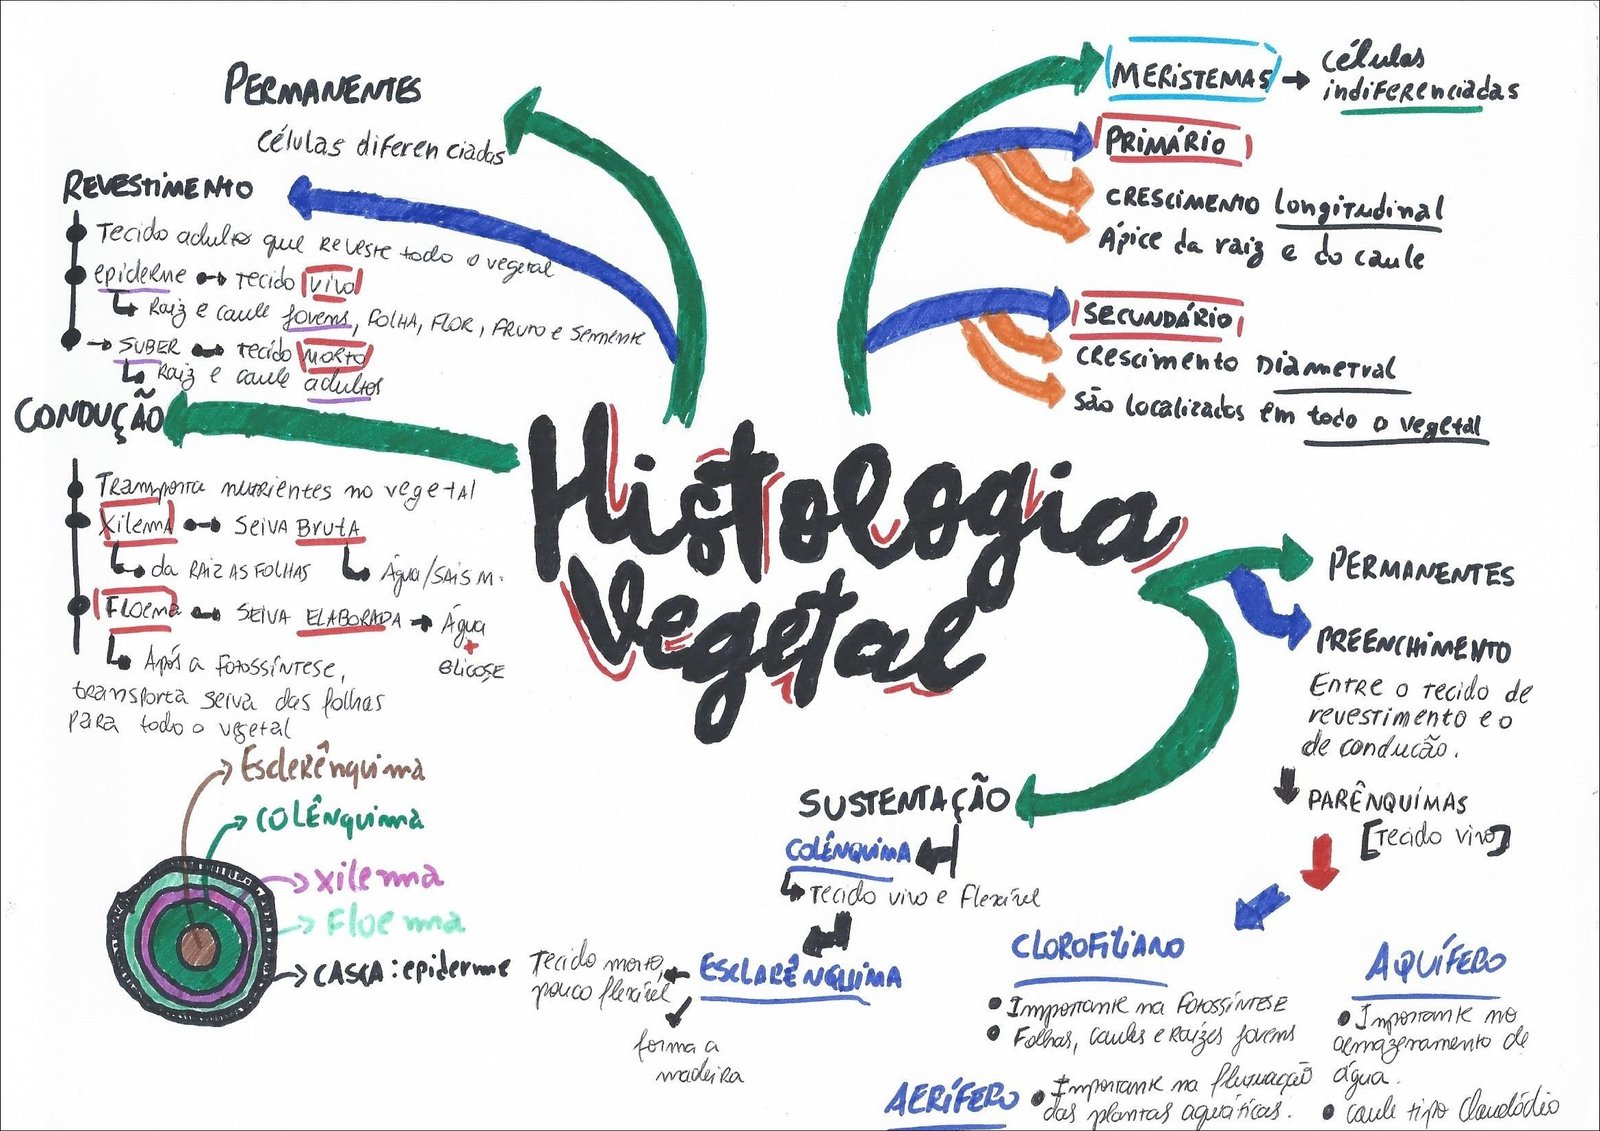 Histologia
Vegetal
PERMANENTES
células diferenciadas
REVESTIMENTO
Tecido adulto que reveste todo o vegetal
epiderme → tecido vivo
Raiz e caule jovens, FOLHA, FLOR, FRUTO e semente
→ SUBER → tecido morto
Raiz e caule adultos
CONDUÇÃO
Transporta nutrientes no vegetal
Xilema → SEIVA BRUTA
da RAIZ AS FOLHAS
Água/SAIS M.
Floema → SEIVA ELABORADA → Água
+
GLICOSE
Após a fotossíntese,
transporta seiva das folhas
para todo o vegetal
Esclerênquima
COLÊNQUIMA
Xilema
Floema
CASCA: epiderme
MERISTEMAS → células
indiferenciadas
PRIMÁRIO
CRESCIMENTO Longitudinal
Ápice da raiz e do caule
SECUNDÁRIO
CRESCIMENTO Diametral
São localizados em todo o vegetal
PERMANENTES
PREENCHIMENTO
Entre o tecido de
revestimento e o
de conducão.
PARÊNQUIMAS
[Tecido vivo]
SUSTENTAÇÃO
COLÊNQUIMA
Tecido vivo e flexível
ESCLARÊNQUIMA
Tecido morto,
pouco flexível
forma a
madeira
CLOROFILIANO
Importante na fotossíntese
Folhas, caules e raízes jovens
AQUÍFERO
Importante no
armazenamento de
água.
caule tipo Claudódio
AERÍFERO
Importante na flutuação
das plantas aquáticas.